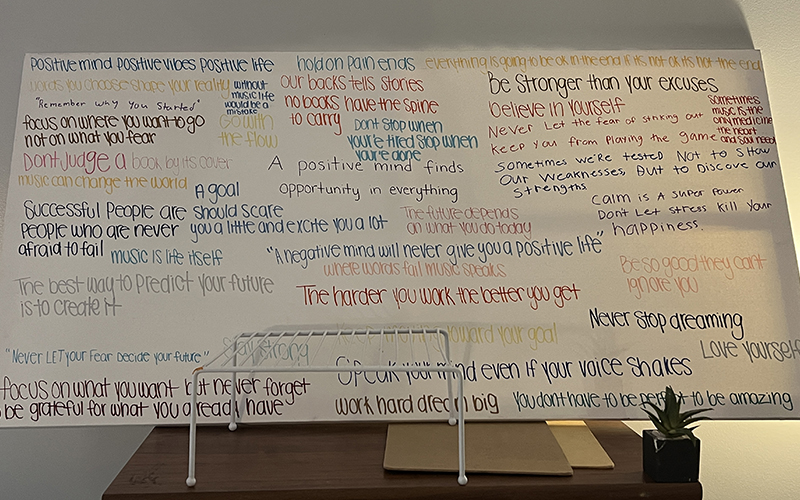 positive mind positive vibes positive life
hold on pain ends
everything is going to be ok in the end if its not ok its not the end
words you choose shape your reality
"Remember why you started"
without
music life
would be a
mistake
our backs tells stories
no books have the spine
to carry
Be stronger than your excuses
believe in yourself
Never Let the fear of striking out
keep you from playing the game
sometimes
music is the
only medicine
the heart
and soul need
focus on where you want to go
not on what you fear
Go with
the flow
Dont stop when
you're tired stop when
you're done
Dont judge a book by its cover
music can change the world
A positive mind finds
opportunity in everything
Sometimes we're tested Not to Show
Our Weaknesses, But to Discover our
Strengths
A goal
should scare
you a little and excite you a lot
Successful People are
People who are never
afraid to fail
The future depends
on what you do today
Calm is a super power
Don't Let stress kill your
happiness.
music is life itself
"A negative mind will never give you a positive life"
where words fail music speaks
Be so good they can't
ignore you
The best way to Predict your future
is to create it
The harder you work the better you get
Never stop dreaming
toward your goal
"Never LET your Fear Decide your future"
Stay strong
Speak your mind even if your voice shakes
Love yourself
focus on what you want but never forget
be grateful for what you already have
work hard dream big
You don't have to be perfect to be amazing